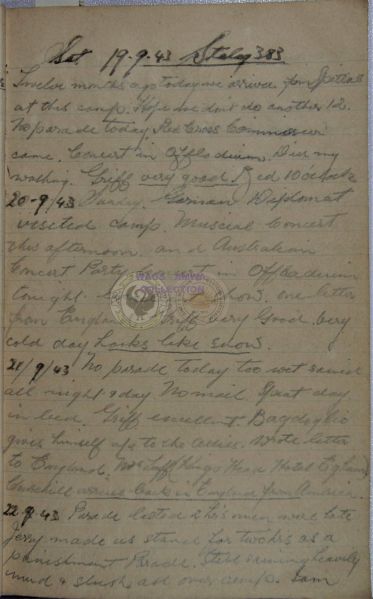 Sat 19-9-43 Stalag 383
Twelve months ago today we arrive from
at this camp. Hope we don't do another 12.
No parade today Red Cross Commission
came. Concert in Did my
washing. Griff very good. Bed 10 oclock
20-9/43 German Diplomat
visited camp. Musical Concert
this afternoon. and Australian
Concert Party in
tonight. show. one letter
from England Griff very Good. Very
cold day Looks like snow.
21/9/43 No parade today too wet rained
all night & day No mail. Spent day
in bed. Griff excellent. Badoglio
gives himself up to the allies. Wrote letter
to England. Mr Kings Head Hotel Egham
Churchill arrives back in England from America.
22.9.43 Parade lasted 2 hrs men were late
Jerry made us stand for two hrs as a
punishment Parade. Still raining heavily
mud & slush all over camp. I am
WAGS
COLLECTION